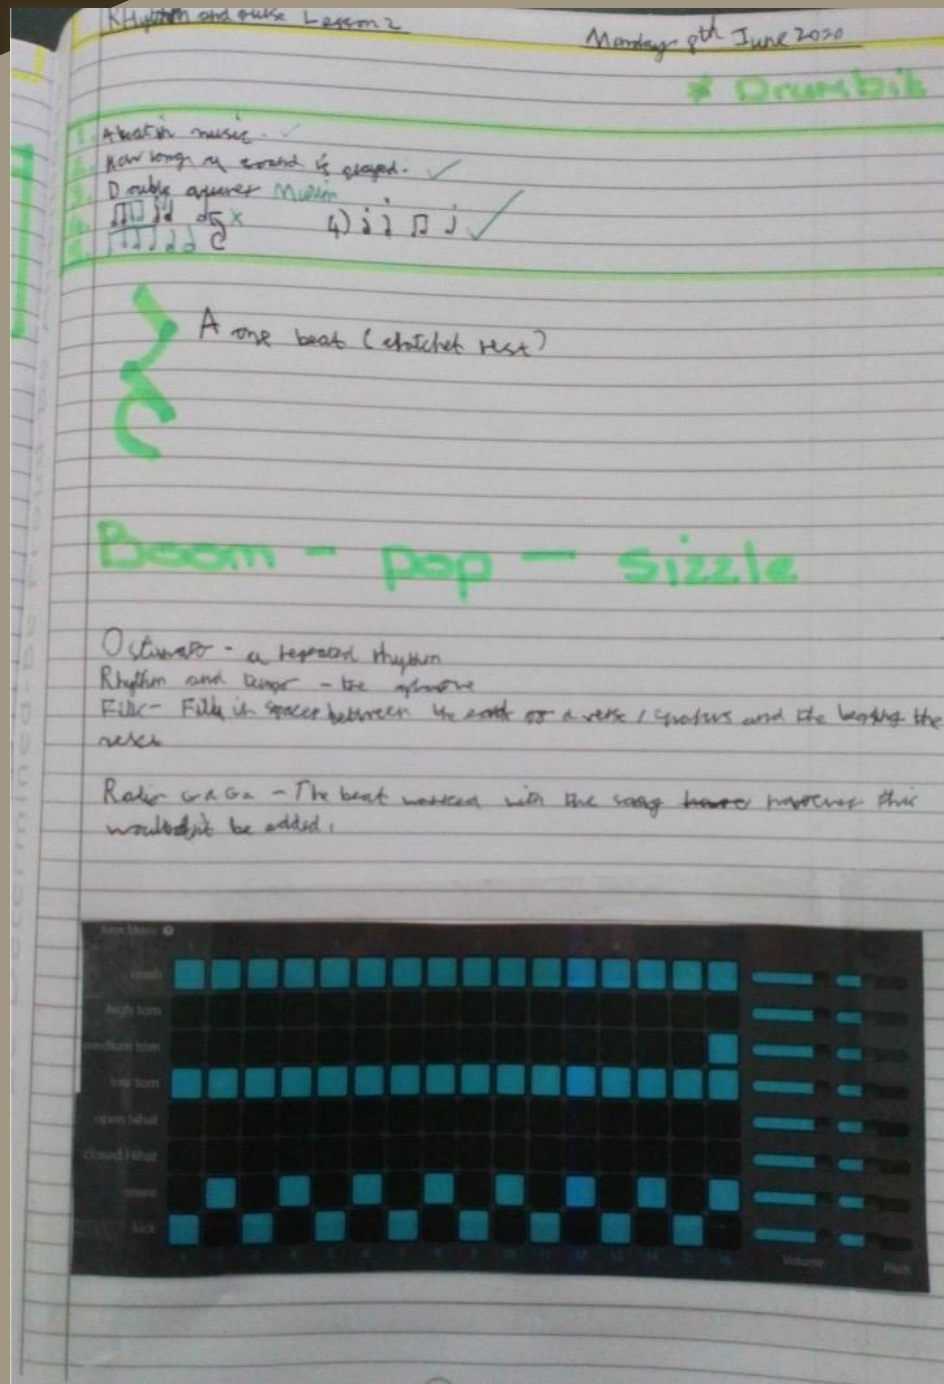 Rhythm and pulse Lesson 2
Monday 8th June 2020
* Drumbit
1. A beat in music.
2. How long a sound is played.
3. Double quaver Minim
4.
4)
5.
A one beat (crotchet rest)
Boom - pop - sizzle
Ostinato - a repeated rhythm
Rhythm and - the groove
Fills - Fills in spaces between the end of a verse / and the the
Radio GaGa - The beat worked with the song however this
be added.
crash
high tom
medium tom
low tom
open hihat
closed Hihat
snare
kick
1 2 3 4 5 6 7 8 9 10 11 12 13 14 15 16
Volume
Pitch